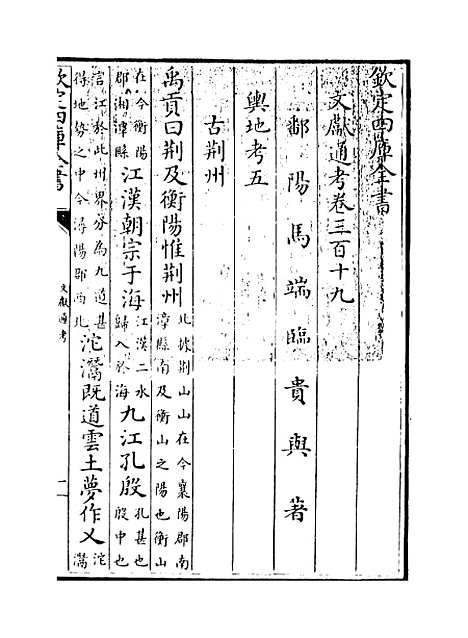 欽定四庫全書
文獻通考卷三百十九
鄱陽馬端臨貴與著
輿地考五
古荆州
禹貢曰荆及衡陽惟荆州北據荆山山在今襄陽郡南漳縣南及衡山之陽也衡山
在今衡陽郡湘潭縣江漢朝宗于海江漢二水歸入於海九江孔殷孔甚也殷中也
言江於此州界分為九道甚得地勢之中今潯陽郡西北沱濳既道雲土夢作乂沱濳
欽定四庫全書
文獻通考
一